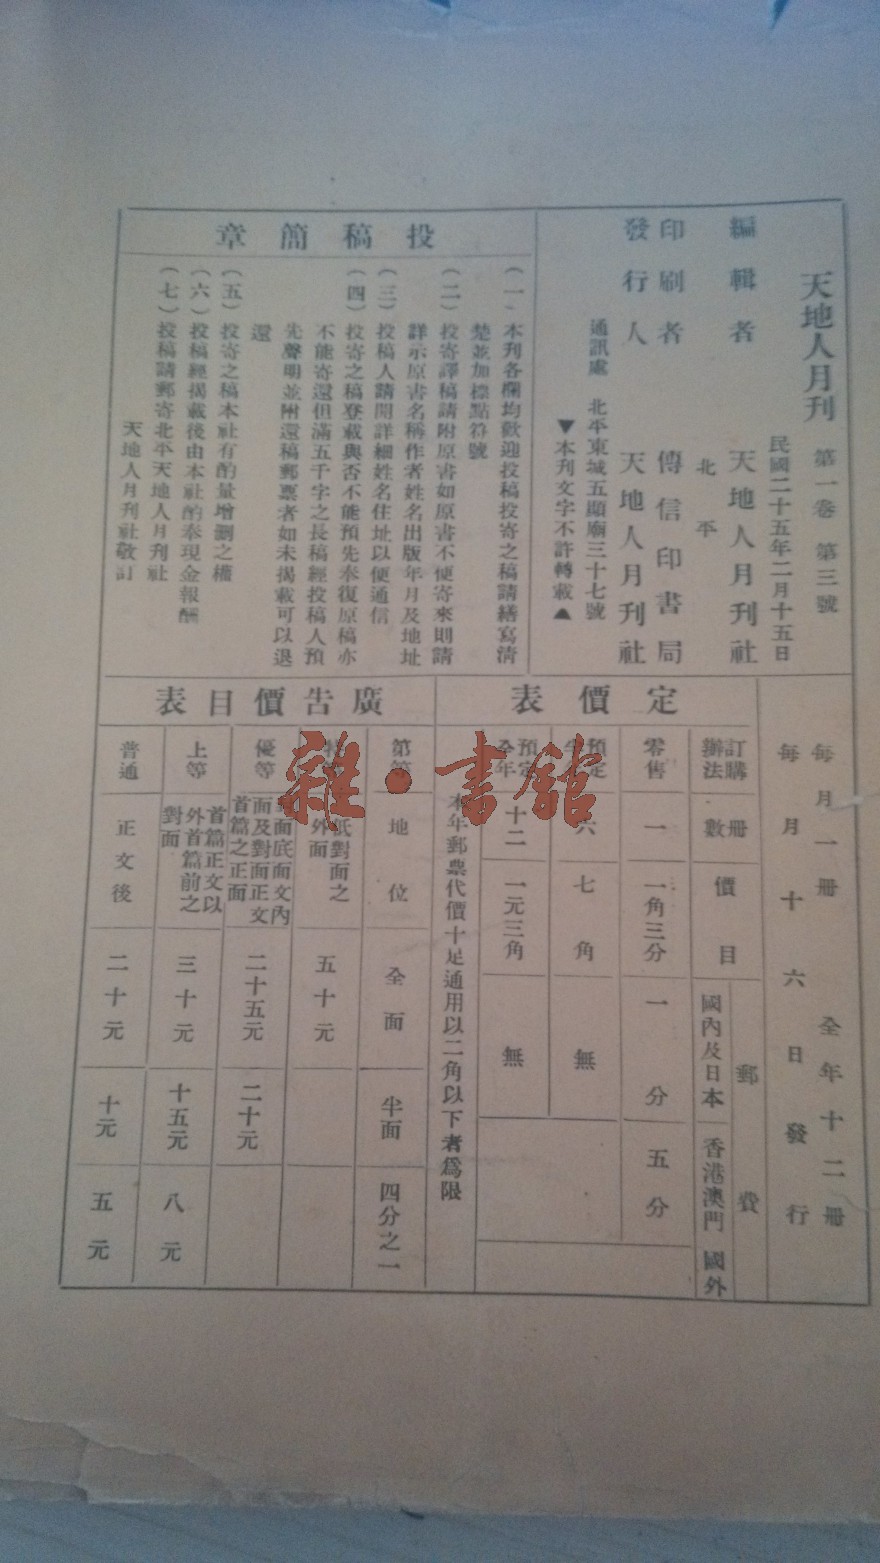 天地人月刊 第一卷 第三號
民國二十五年二月十五日
編輯者 天地人月刊社
北平
印刷者 傳信印書局
發行人 天地人月刊社
通訊處 北平東城五顯廟三十七號
▼本刊文字不許轉載▲
投稿簡章
(一)本刊各欄均歡迎投稿投寄之稿請繕寫清
楚並加標點符號
(二)投寄譯稿請附原書如原書不便寄來則請
詳示原書名稱作者姓名出版年月及地址
(三)投稿人請開詳細姓名住址以便通信
(四)投寄之稿登載與否不能預先奉復原稿亦
不能寄還但滿五千字之長稿經投稿人預
先聲明並附還稿郵票者如未揭載可以退
還
(五)投寄之稿本社有酌量增删之權
(六)投稿經揭載後由本社酌奉現金報酬
(七)投稿請郵寄北平天地人月刊社
天地人月刊社敬訂
每月一冊 全年十二冊
每月十六日發行
定價表
訂購辦法 冊數 價目 郵費
國內及日本 香港澳門 國外
零售 一 一角三分 一分 五分
預定 六 七角 無
預定全年 十二 一元三角 無
本年郵票代價十足通用以二角以下者為限
廣告價目表
第等 地位 全面 半面 四分之一
對面之
外面 五十元
優等 對面底面文內
面及對面正文
首篇之正面 二十五元 二十元
上等 首篇正文以
外首篇前之
對面 三十元 十五元 八元
普通 正文後 二十元 十元 五元
雜·書館